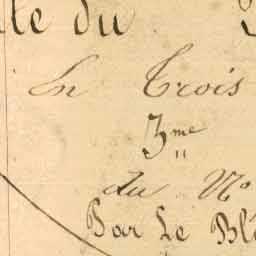 le du
En Trois
3me
du No
Par Le Blé